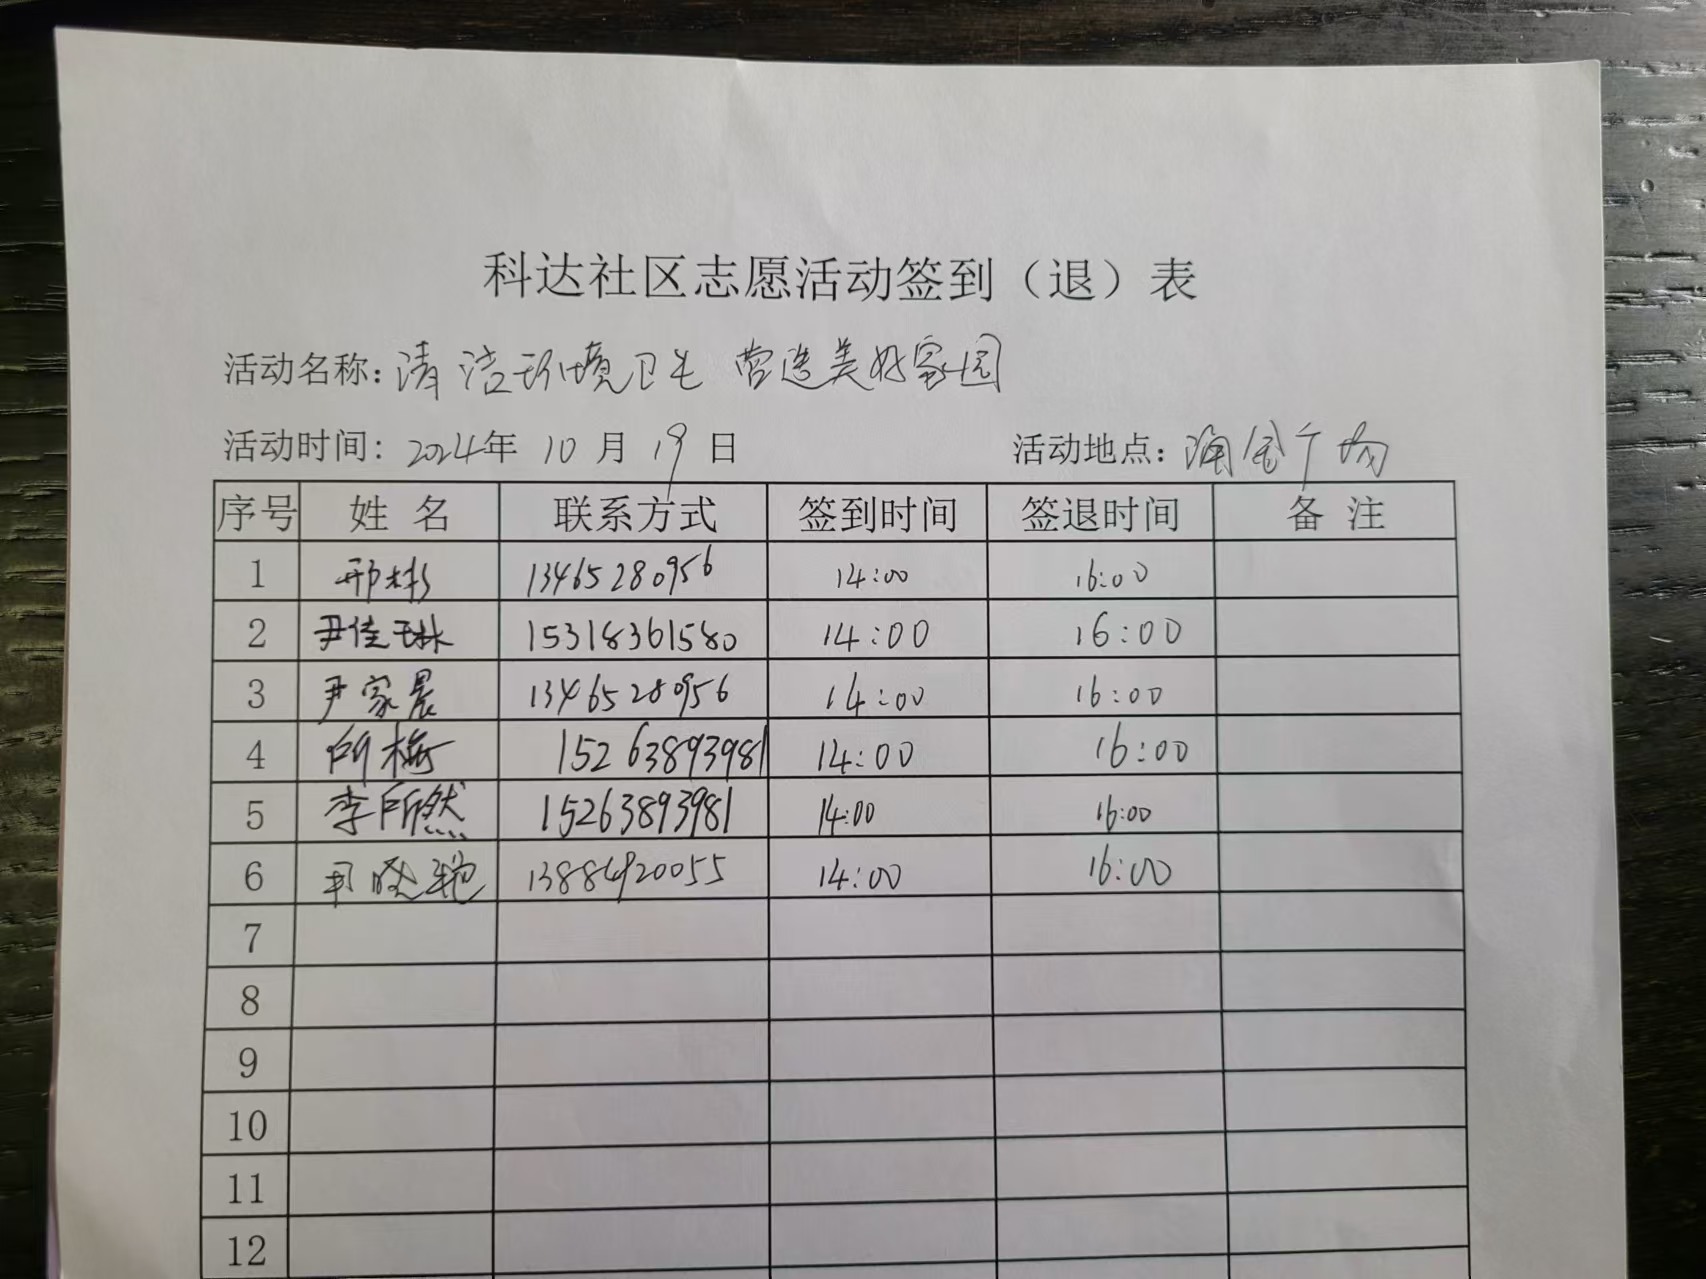 科达社区志愿活动签到（退）表
活动名称：清洁环境卫生 营造美好家园
活动时间：2024年 10 月 19 日 活动地点：淘金广场
序号 姓 名 联系方式 签到时间 签退时间 备 注
1 邢彬 13465280956 14:00 16:00
2 尹佳琳 15318361580 14:00 16:00
3 尹家晨 13465280956 14:00 16:00
4 所梅 15263893981 14:00 16:00
5 李所然 15263893981 14:00 16:00
6 13884920055 14:00 16:00
7
8
9
10
11
12